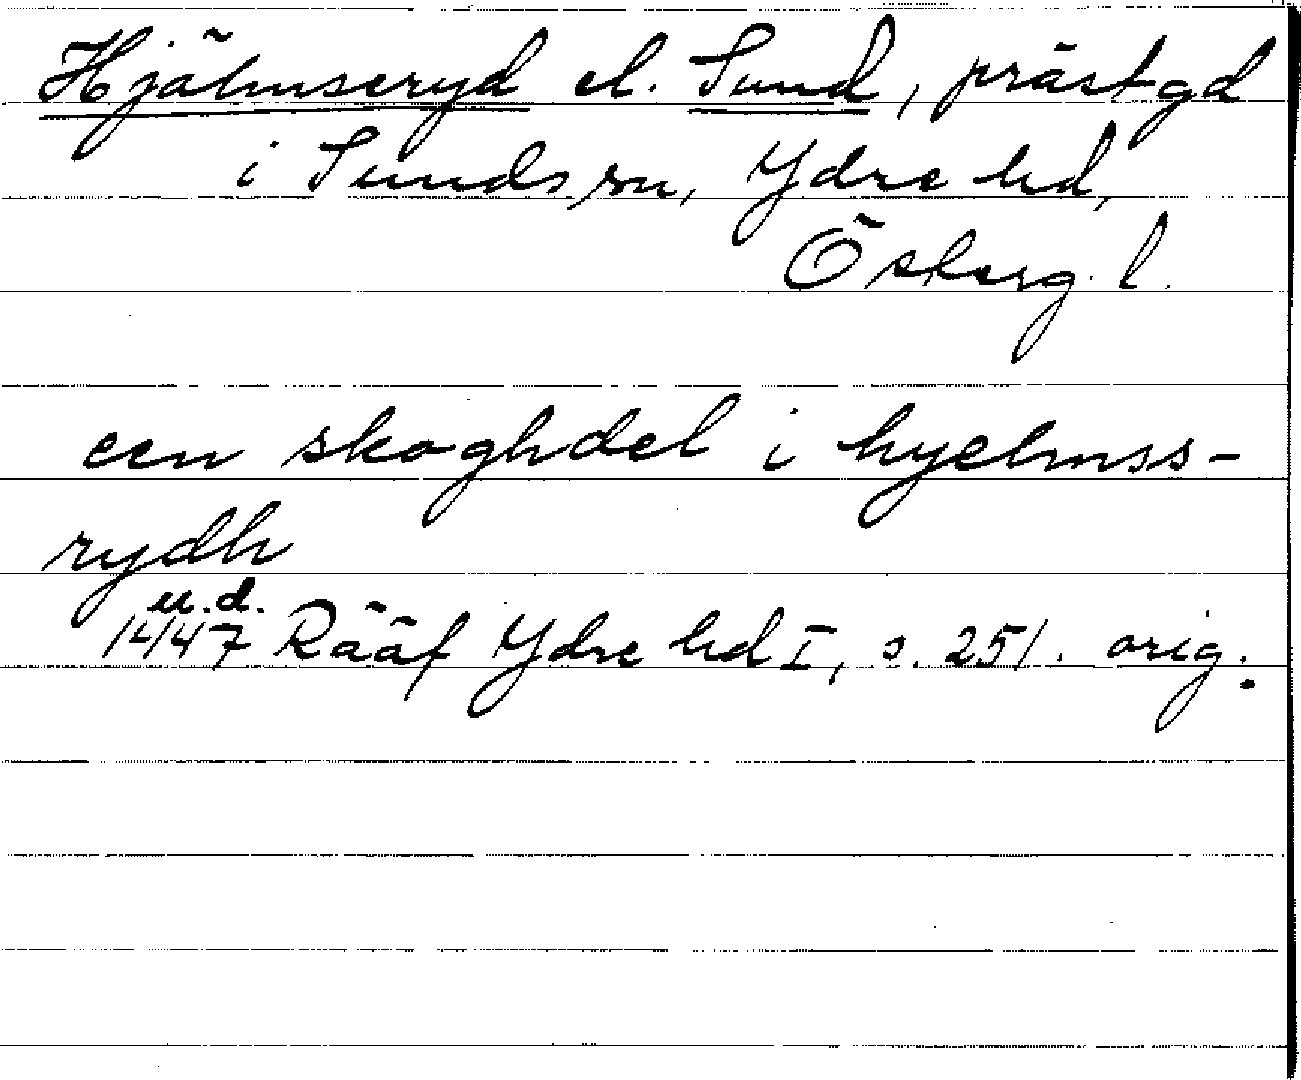 Hjälmseryd el. Sund, prästgd
i Sunds sn, Ydre hd,
Österg. l.
een skoghdel i hyelmss-
rydh
u.d.
1447 Rääf Ydre hd I, s. 251. orig.